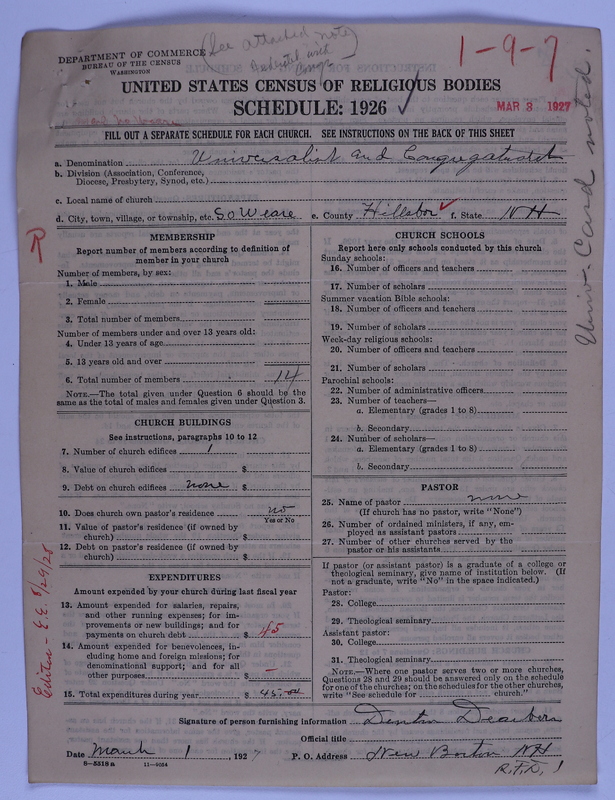 (See attached note)
DEPARTMENT OF COMMERCE
BUREAU OF THE CENSUS
WASHINGTON
1-9-7
UNITED STATES CENSUS OF RELIGIOUS BODIES
SCHEDULE: 1926 ✓
MAR 3 1927
FILL OUT A SEPARATE SCHEDULE FOR EACH CHURCH. SEE INSTRUCTIONS ON THE BACK OF THIS SHEET
a. Denomination Universalist and Congregationalist
b. Division (Association, Conference,
Diocese, Presbytery, Synod, etc.)
c. Local name of church
d. City, town, village, or township, etc. So Weare e. County Hillsbor ✓ f. State NH
Univ. Card noted.
MEMBERSHIP
Report number of members according to definition of
member in your church
Number of members, by sex:
1. Male
2. Female
3. Total number of members
Number of members under and over 13 years old:
4. Under 13 years of age
5. 13 years old and over
6. Total number of members 14
NOTE.—The total given under Question 6 should be the
same as the total of males and females given under Question 3.
CHURCH BUILDINGS
See instructions, paragraphs 10 to 12
7. Number of church edifices 1
8. Value of church edifices $
9. Debt on church edifices none $
10. Does church own pastor's residence no
Yes or No
11. Value of pastor's residence (if owned by
church) $
12. Debt on pastor's residence (if owned by
church) $
EXPENDITURES
Amount expended by your church during last fiscal year
13. Amount expended for salaries, repairs,
and other running expenses; for im-
provements or new buildings; and for
payments on church debt $ 45
14. Amount expended for benevolences, in-
cluding home and foreign missions; for
denominational support; and for all
other purposes $ —
15. Total expenditures during year $ 45.00
Edited - E.E. 8/29/28
CHURCH SCHOOLS
Report here only schools conducted by this church
Sunday schools:
16. Number of officers and teachers
17. Number of scholars
Summer vacation Bible schools:
18. Number of officers and teachers
19. Number of scholars
Week-day religious schools:
20. Number of officers and teachers
21. Number of scholars
Parochial schools:
22. Number of administrative officers
23. Number of teachers—
a. Elementary (grades 1 to 8)
b. Secondary
24. Number of scholars—
a. Elementary (grades 1 to 8)
b. Secondary
PASTOR
25. Name of pastor none
(If church has no pastor, write "None")
26. Number of ordained ministers, if any, em-
ployed as assistant pastors
27. Number of other churches served by the
pastor or his assistants
If pastor (or assistant pastor) is a graduate of a college or
theological seminary, give name of institution below. (If
not a graduate, write "No" in the space indicated.)
Pastor:
28. College
29. Theological seminary
Assistant pastor:
30. College
31. Theological seminary
NOTE.—Where one pastor serves two or more churches,
Questions 28 and 29 should be answered only on the schedule
for one of the churches; on the schedules for the other churches,
write "See schedule for church."
Signature of person furnishing information Denton Dearborn
Official title
Date March 1, 1927 P. O. Address New Boston NH
8-5518 a 11-9054
R.F.D. 1